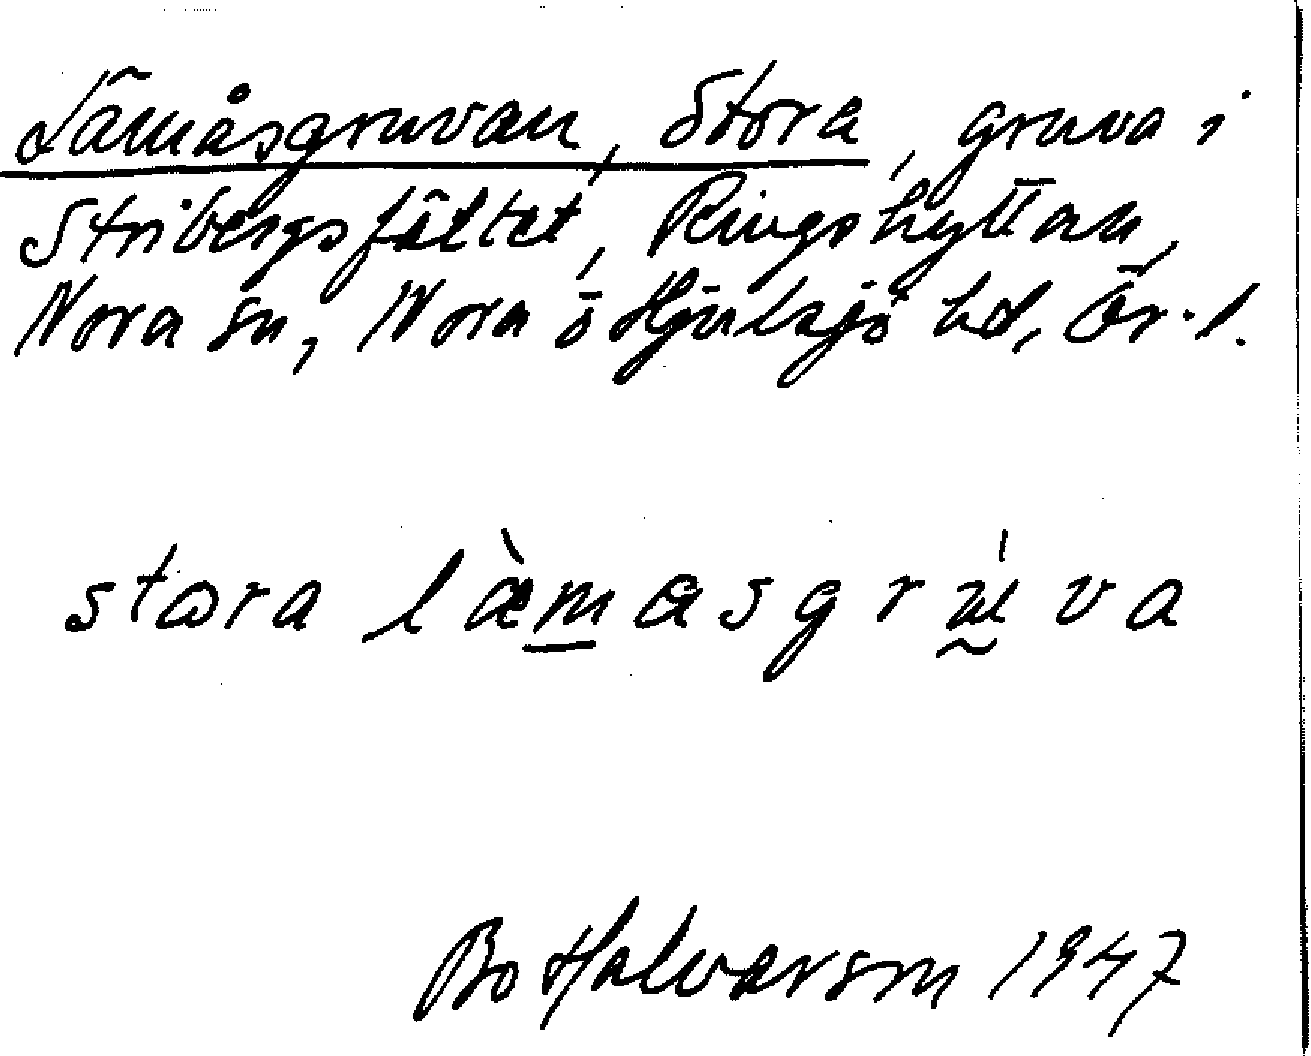 Lämåsgruvan, Stora, gruva i
Stribergsfältet, Ringshyttan,
Nora sn, Nora o Hjulsjö hd, Ör. l.
stωra læ̀masgrúva
Bo Halvarsm 1947